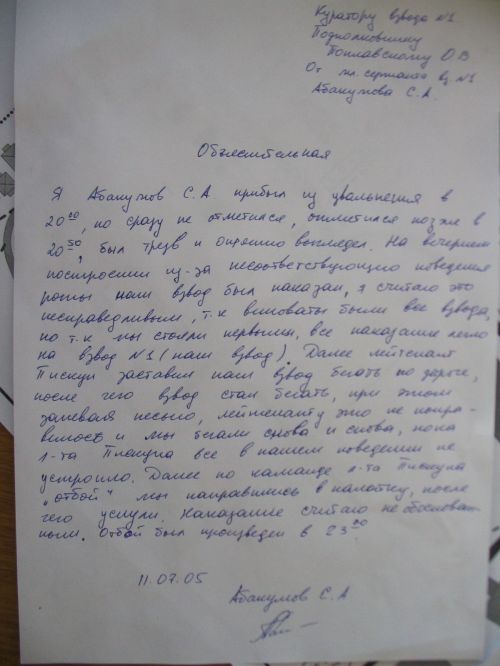 Куратору взвода №1
Подполковнику
Поплавскому О.В
От мл. сержанта вз. №1
Абакумова С.А.
Объяснительная
Я Абакумов С.А. прибыл из увальнения в
20⁰⁰, но сразу не отметился, отметился позже в
20⁵⁰, был трезв и опрятно выглядел. На вечернем
построении из-за несоответствующего поведения
роты наш взвод был наказан, я считаю это
несправедливым, т.к виноваты были все взвода,
но т.к мы стояли первыми, все наказание легло
на взвод №1 (наш взвод). Далее лейтенант
Пискун заставил наш взвод бегать по дороге,
после чего взвод стал бегать, при этом
запевая песню, лейтенанту это не понра-
вилось и мы бегали снова и снова, пока
л-та Пискуна все в нашем поведении не
устроило. Далее по команде л-та Пискуна
"отбой" мы направились в палатку, после
чего уснули. Наказание считаю не обоснован-
ным. Отбой был произведен в 23⁰⁰.
11.07.05
Абакумов С.А